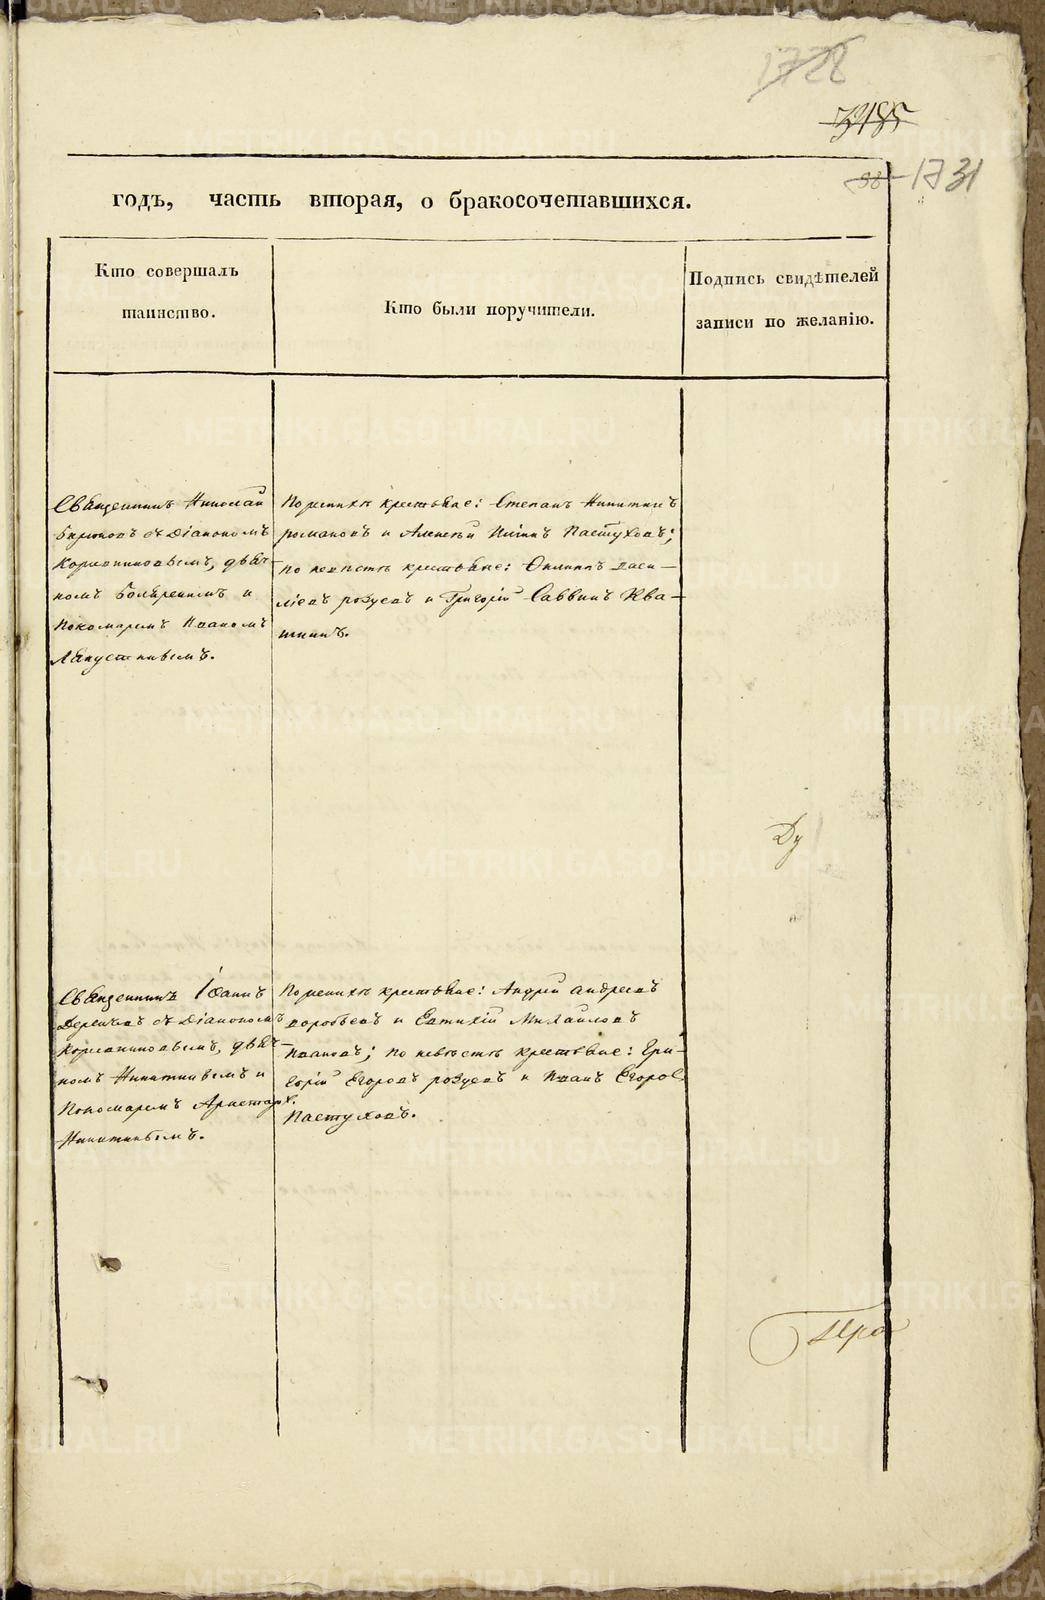 1728
1731
годъ, часть вторая, о бракосочетавшихся.
Кто совершалъ
таинство.
Кто были поручители.
Подпись свидѣтелей
записи по желанію.
Священникъ Николай
Бирюковъ съ Діакономъ
дьяч-
комъ Боляреимъ и
Пономаремъ Иваномъ
Ляпустинымъ.
По женихѣ крестьяне: Степанъ Никитинъ
Романовъ и Алексѣй Пастуховъ;
по невѣстѣ крестьяне: Филипъ Васи-
ліевъ и Григорій Саввинъ Ква-
шнинъ.
Священникъ Іоаннъ
съ Діакономъ
дьяч-
комъ Никитинымъ и
Пономаремъ Аристарх.
Никитинымъ.
По женихѣ крестьяне: Андрей Андреевъ
Воробьевъ и Евтихій Михайловъ
Ивановъ; по невѣстѣ крестьяне: Гри-
горій Егоровъ и Иванъ Егоров.
Пастуховъ.
Ду
METRIKI.GASO-URAL.RU